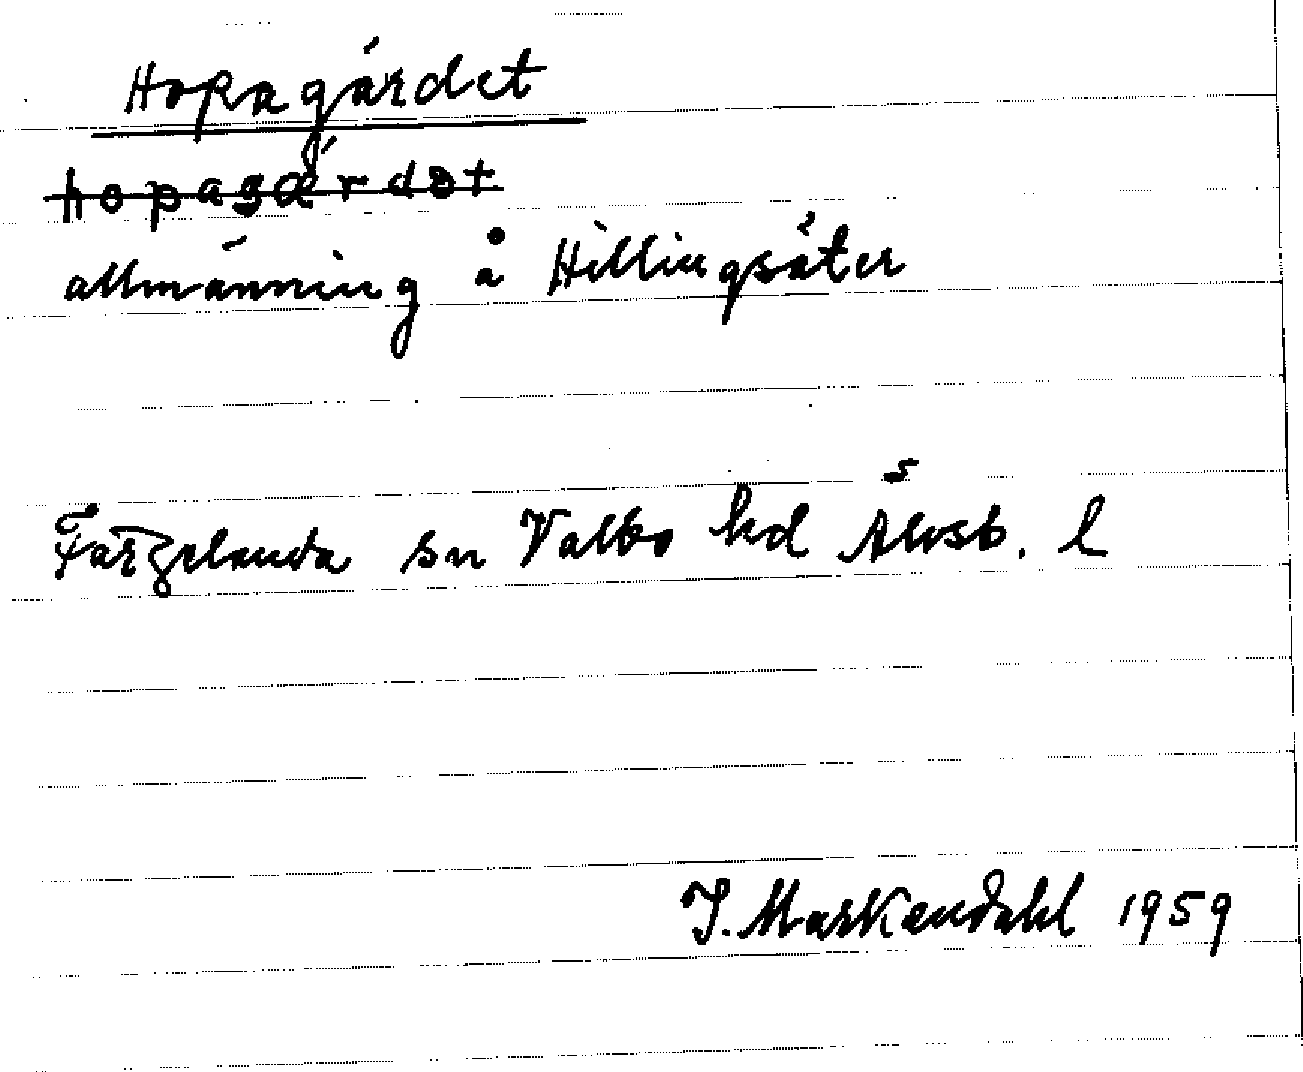 Hopagärdet
hopagærdət
allmänning å Hillingsäter
Färgelanda sn Valbo hd Älvsb. l
J. Markendahl 1959